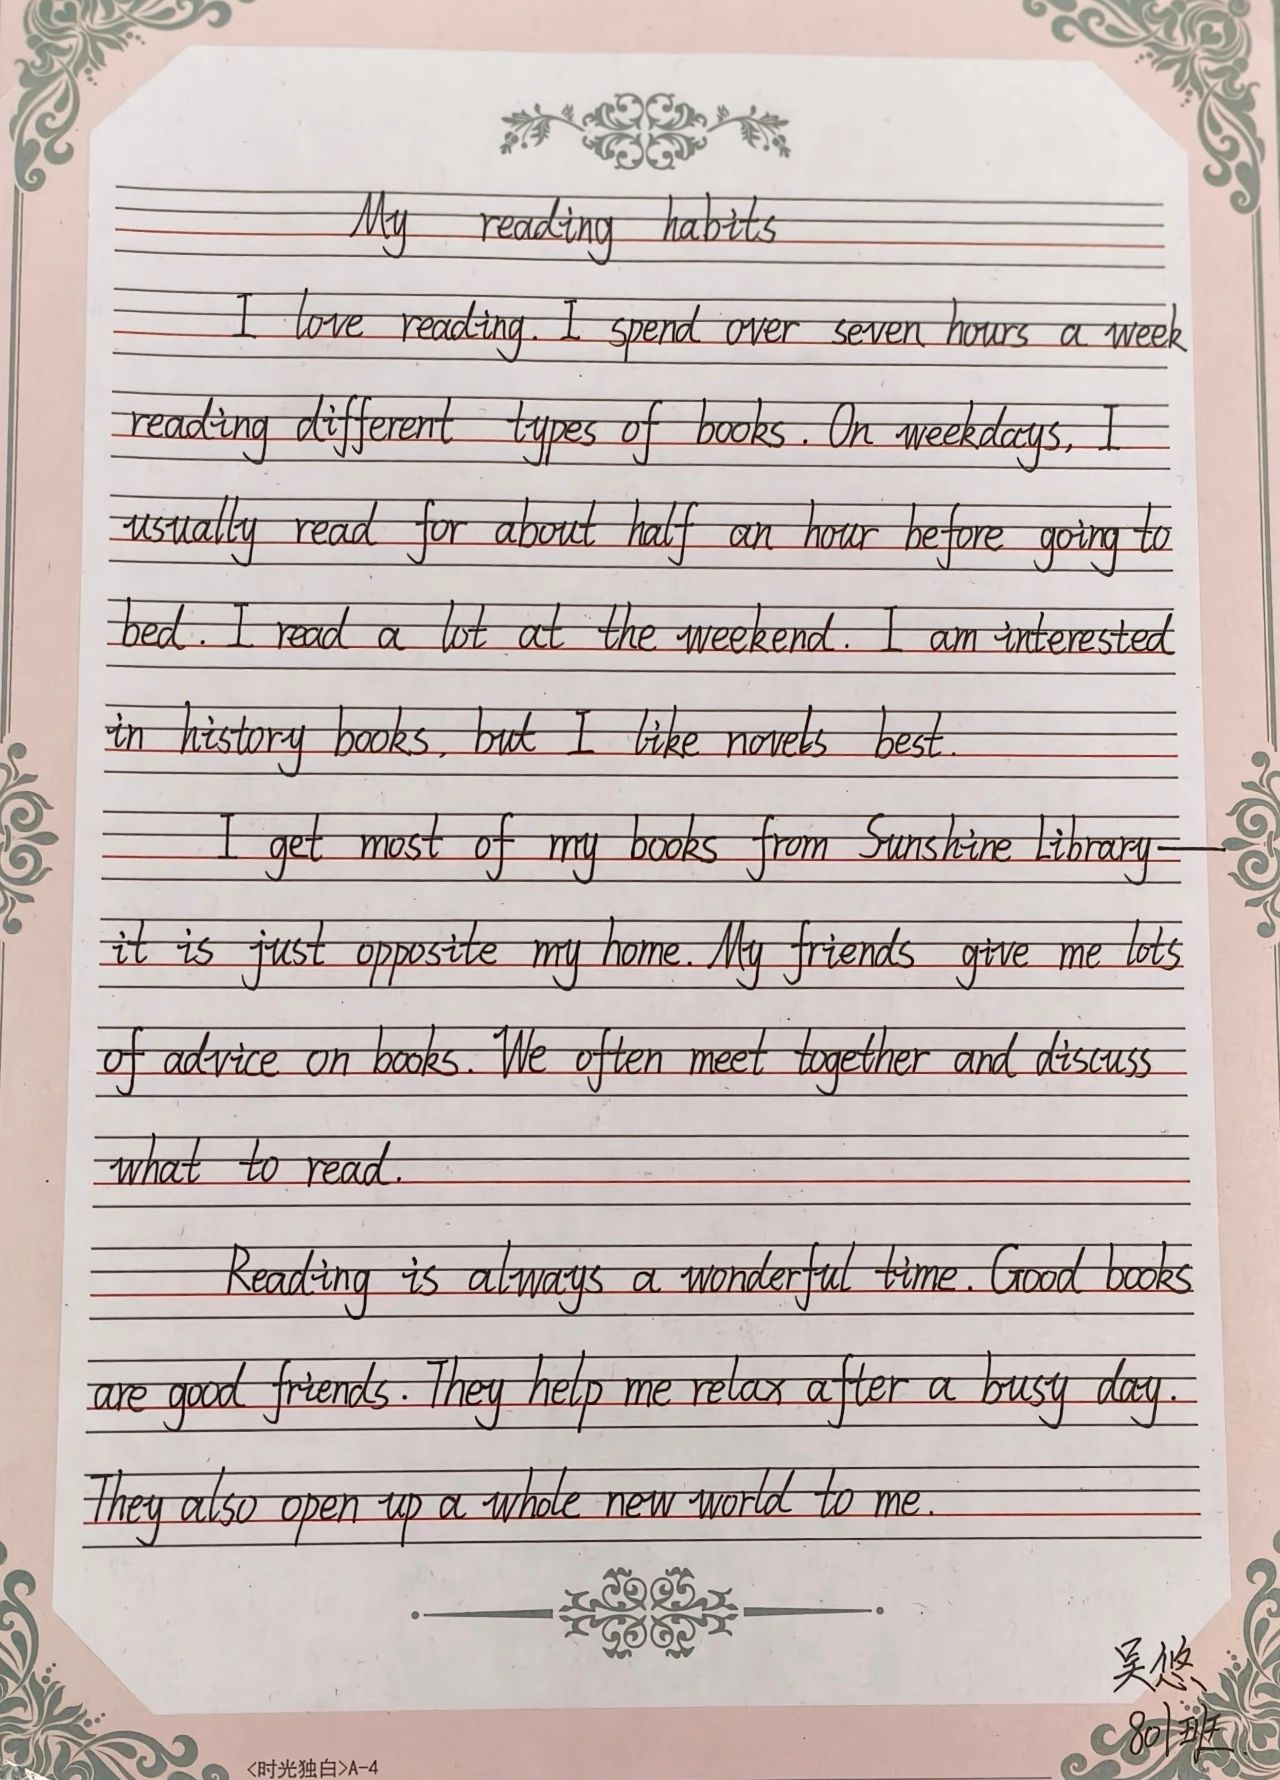 My reading habits
I love reading. I spend over seven hours a week
reading different types of books. On weekdays, I
usually read for about half an hour before going to
bed. I read a lot at the weekend. I am interested
in history books, but I like novels best.
I get most of my books from Sunshine Library—
it is just opposite my home. My friends give me lots
of advice on books. We often meet together and discuss
what to read.
Reading is always a wonderful time. Good books
are good friends. They help me relax after a busy day.
They also open up a whole new world to me.
吴悠
801班
<时光独白>A-4